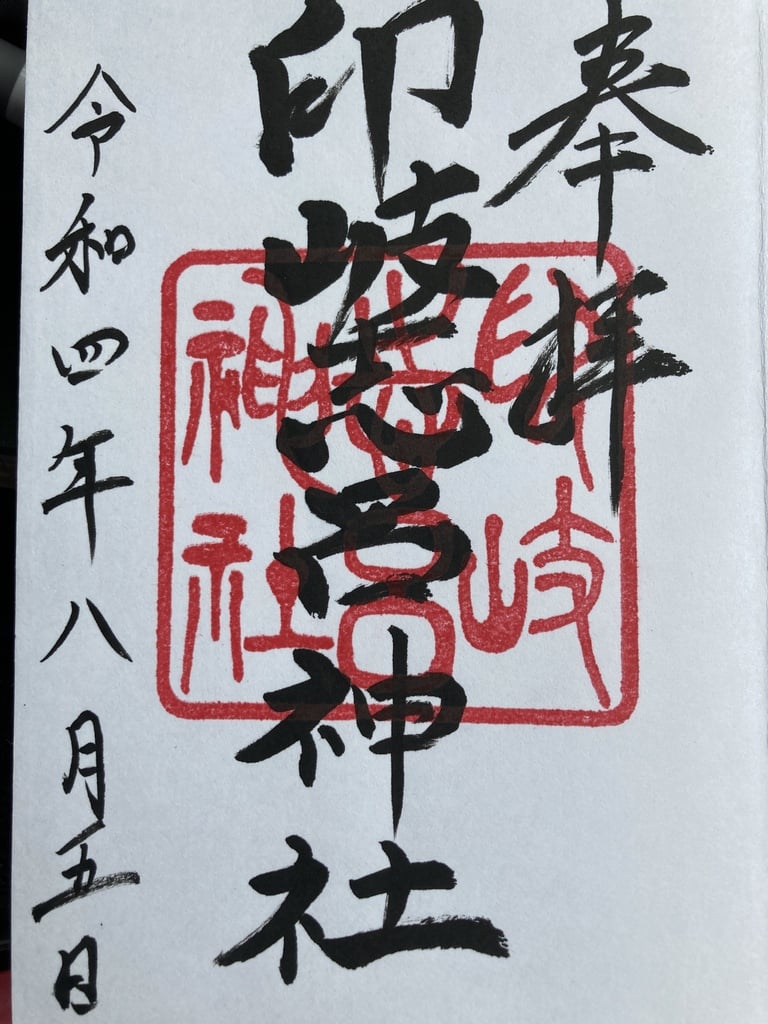 奉拝
印岐志呂神社
令和四年八月五日
印岐
志呂
神社